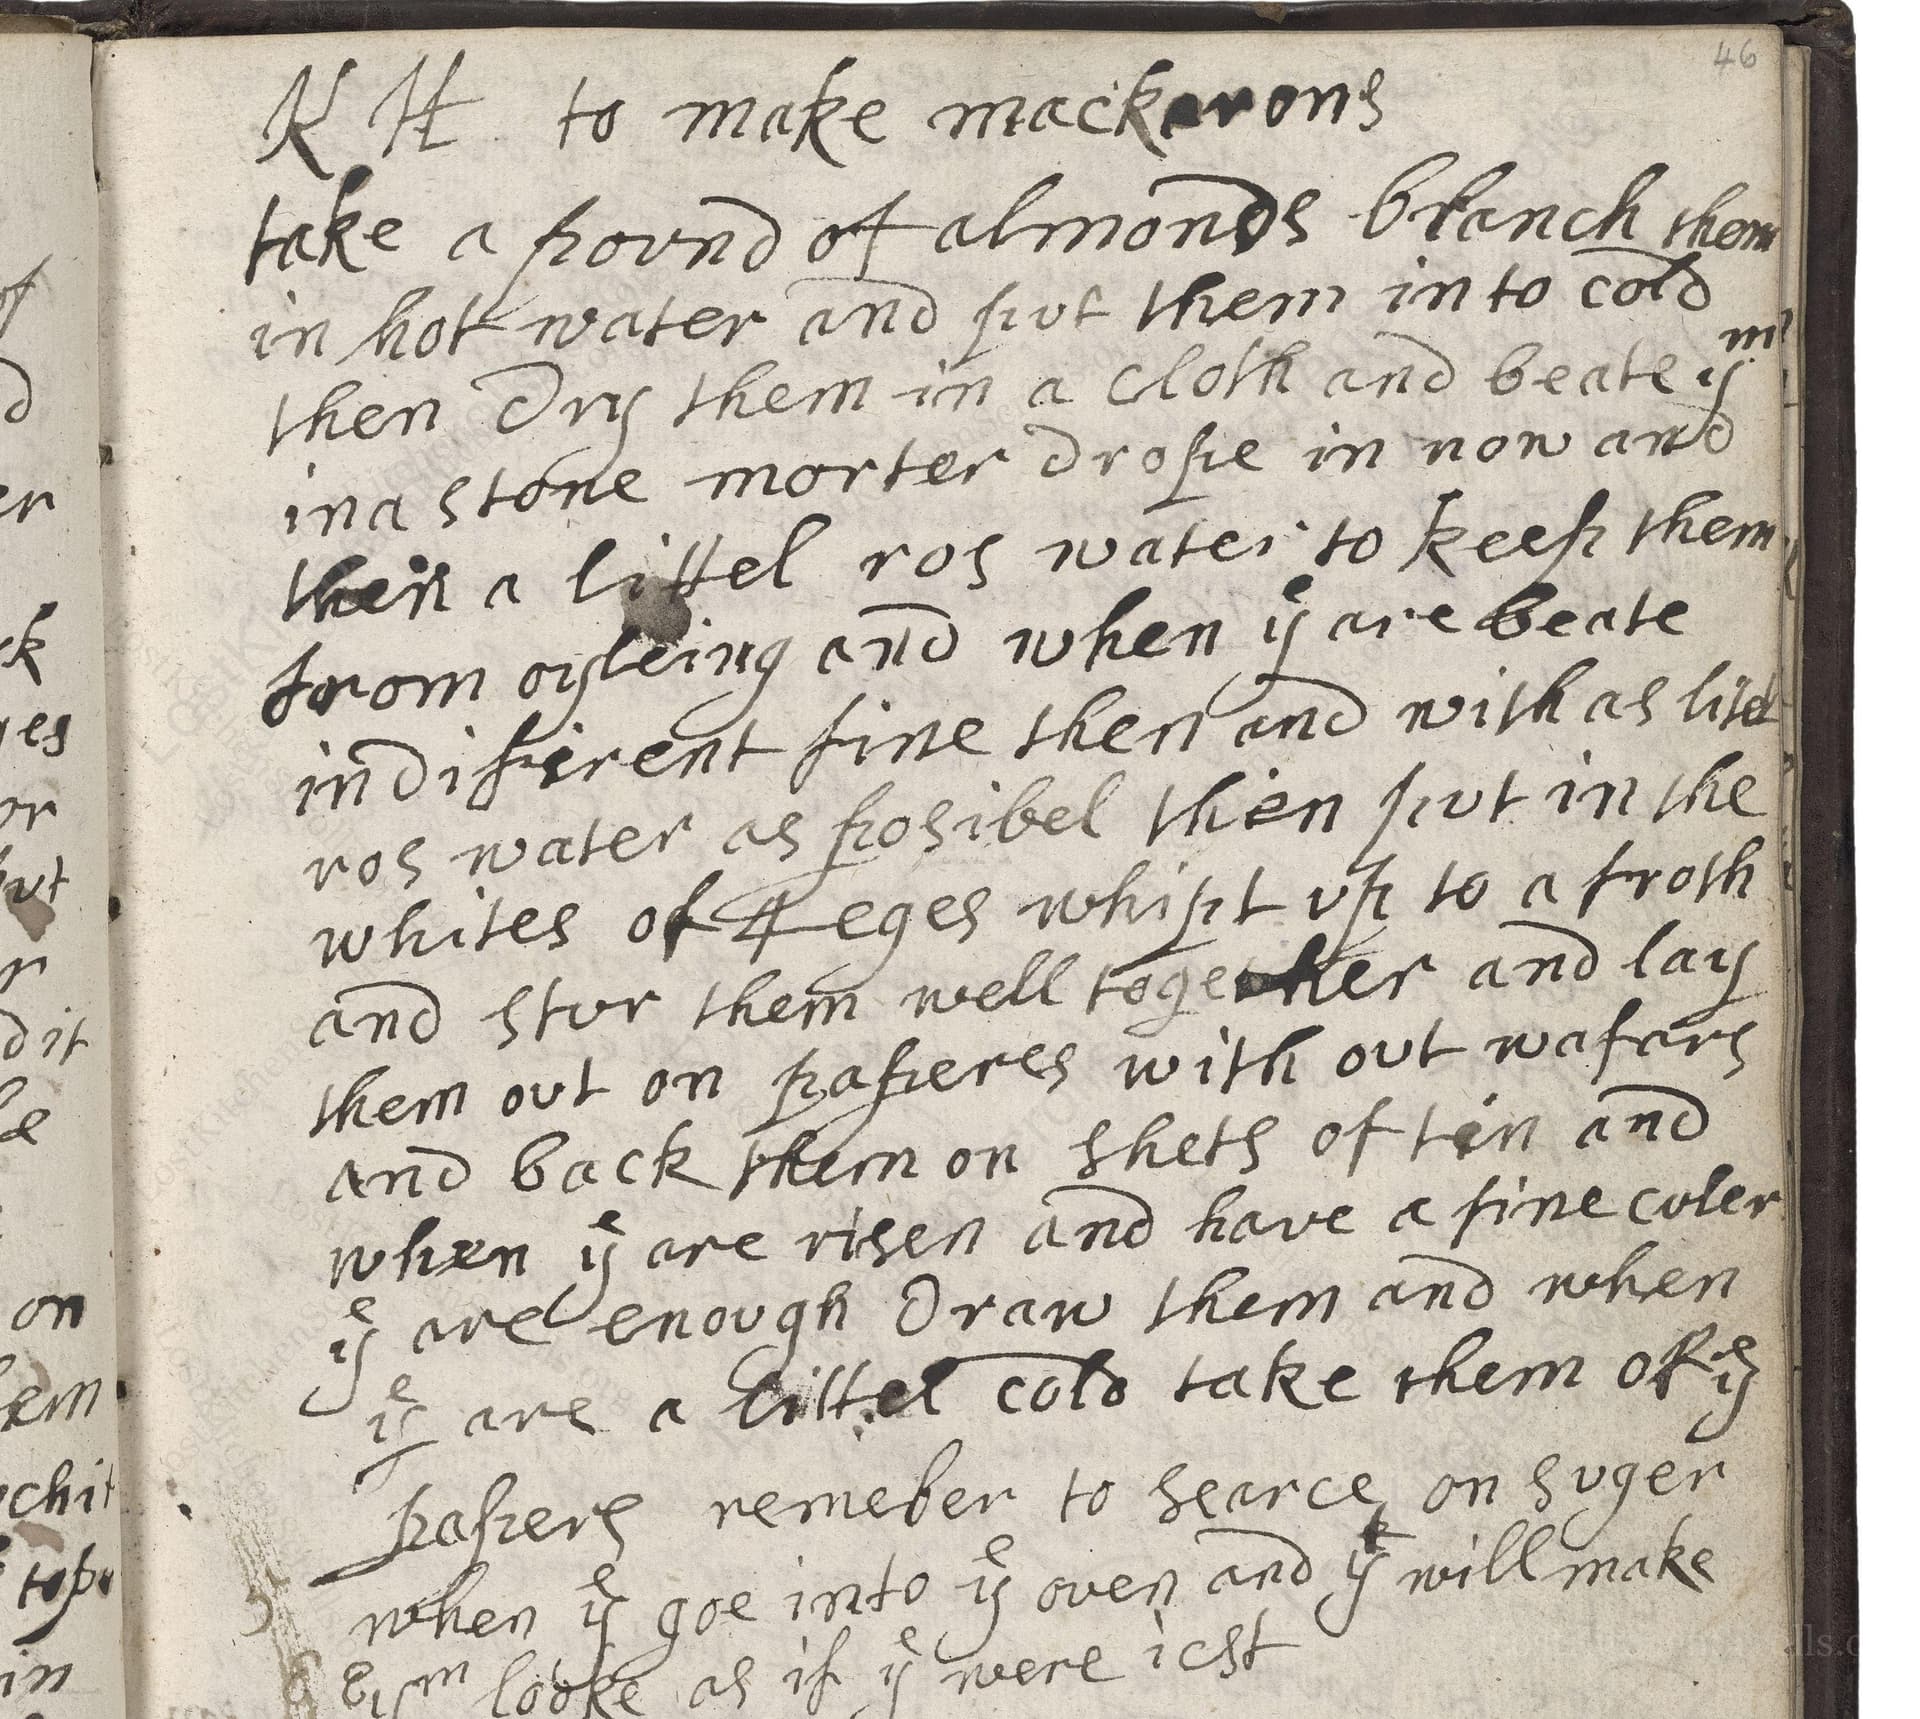 46
K H to make mackarons
take a pound of almonds blanch them
in hot water and put them into cold
then Dry them in a cloth and beate yᵐ
in a stone morter drope in now and
then a littel ros water to keep them
from oyleing and when yᵉ are beate
indifirent fine then and with as litel
ros water as posibel then put in the
whites of 4 eges whipt up to a froth
and stur them well together and lay
them out on paperes with out wafars
and back them on shets of tin and
when yᵉ are risen and have a fine culer
yᵉ are enough Draw them and when
yᵉ are a littel cold take them of yᵉ
papers remeber to searce on suger
when yᵉ goe into yᵉ oven and yᵗ will make
yᵐ looke as if yᵉ were icst